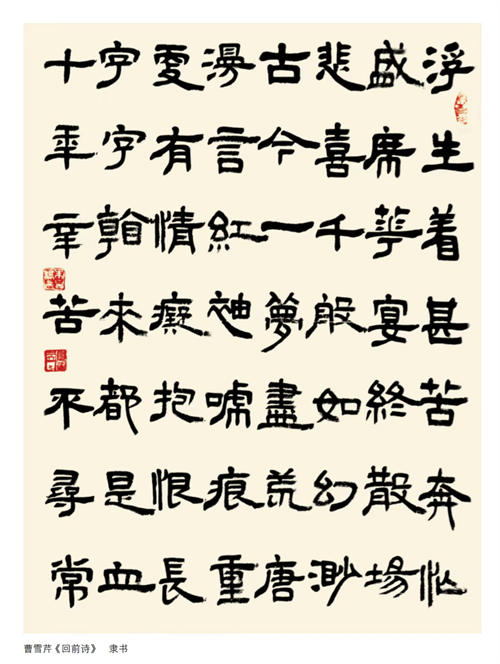 浮生着甚苦奔忙
盛席華宴終散場
悲喜千般如幻渺
古今一夢盡荒唐
漫言紅袖嗁痕重
更有情癡抱恨長
字字看來都是血
十年辛苦不尋常
曹雪芹《回前诗》 隶书